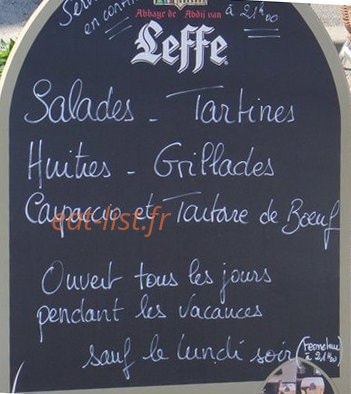 en conti
à 21h00
Abbaye de Abdij van
Leffe
Salades - Tartines
Huitres - Grillades
Carpaccio et Tartare de Boeuf
eat-list.fr
Ouvert tous les jours
pendant les vacances
sauf le lundi soir (Fermeture
à 21h00)